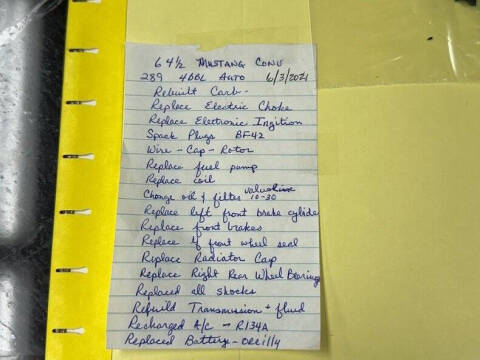 6 4 1/2 MUSTANG CONV
289 4BBL AUTO 6/3/2021
Rebuilt Carb-
Replace Electric Choke
Replace Electronic Ingition
Spark Plugs BF42
Wire - Cap - Rotor
Replace fuel pump
Replace coil
Change oil & filter Valvoline 10-30
Replace left front brake cylider
Replace front brakes
Replace front wheel seal
Replace Radiator Cap
Replace Right Rear Wheel Bearing
Replaced all shocks
Rebuild Transmission + fluid
Recharged A/C - R134A
Replaced Battery - OREilly